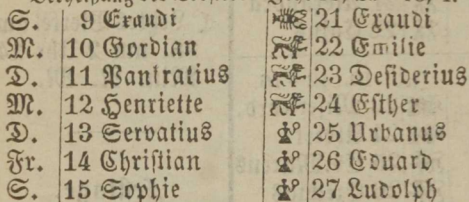 S. 9 Exaudi 21 Exaudi
M. 10 Gordian 22 Emilie
D. 11 Pankratius 23 Desiderius
M. 12 Henriette 24 Esther
D. 13 Servatius 25 Urbanus
Fr. 14 Christian 26 Eduard
S. 15 Sophie 27 Ludolph